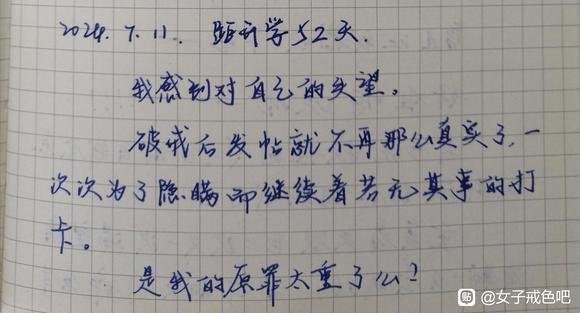 2024. 7. 11. 距开学52天.
我感到对自己的失望。
破戒后发帖就不再那么真实了,一
次次为了隐瞒而继续着若无其事的打
卡。
是我的原罪太重了么?
贴 @女子戒色吧